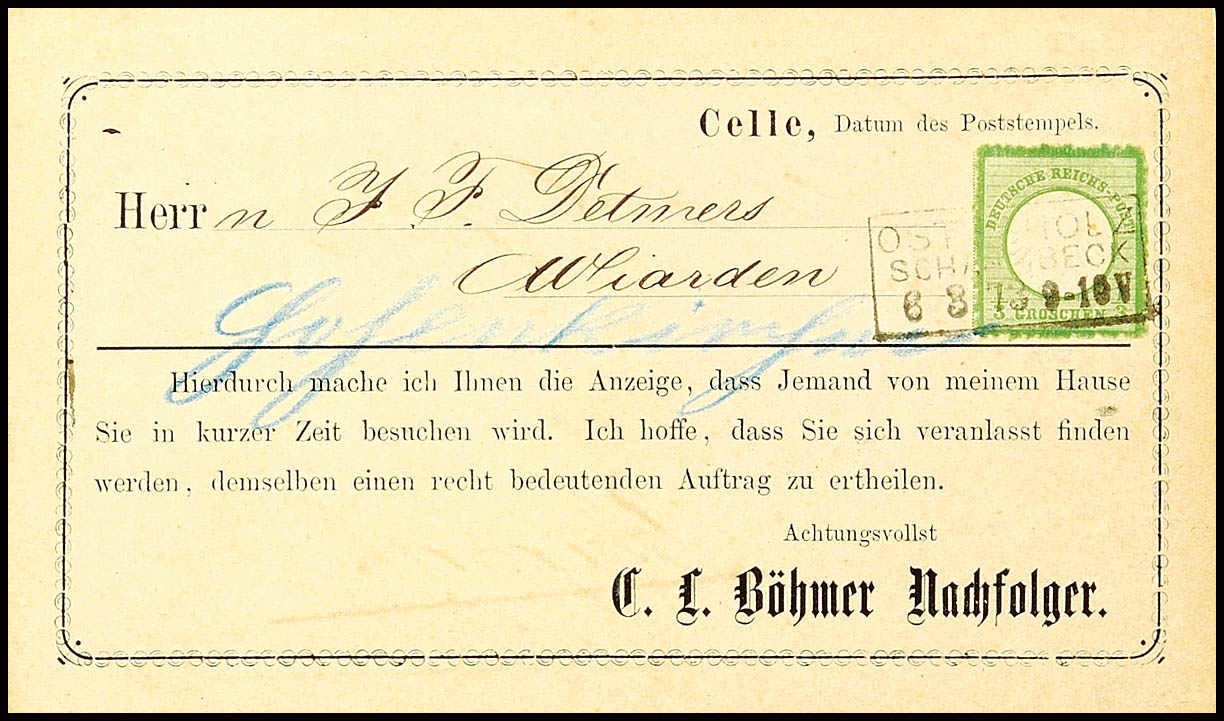 Celle, Datum des Poststempels.
DEUTSCHE REICHS-POST
Herrn J. F. Detmers
OST HOL
SCHA BECK
Wiarden
6 8 73 9-10V
GROSCHEN
Hierdurch mache ich Ihnen die Anzeige, dass Jemand von meinem Hause
Sie in kurzer Zeit besuchen wird. Ich hoffe, dass Sie sich veranlasst finden
werden, demselben einen recht bedeutenden Auftrag zu ertheilen.
Achtungsvollst
C. L. Böhmer Nachfolger.